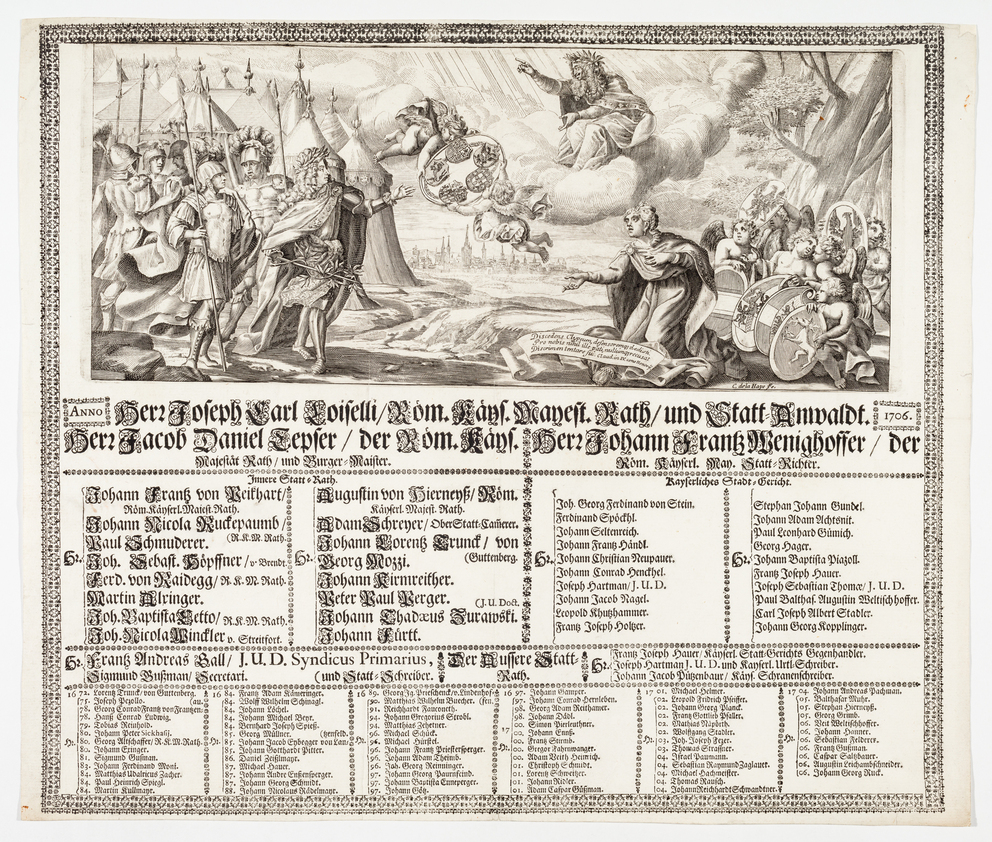 C. de la Haye fe.
ANNO Herr Joseph Carl Loiselli/Röm. Käys. Mayest. Rath/und Statt-Anwaldt. 1706.
Herr Jacob Daniel Tepser / der Röm. Käys.
Majestät Rath/ und Burger-Maister.
Herr Johann Frantz Wenighoffer / der
Röm. Käyserl. May. Statt-Richter.
Innere Statt-Rath.
Johann Frantz von Peikhart/
Röm. Käyserl. Majest. Rath.
Johann Nicola Ruckepaumb/
(R.K.M. Rath.
Paul Schmuderer.
Hr. Joh. Sebast. Höpffner/ v. Brendt.
Ferd. von Raidegg/ R.K.M. Rath.
Martin Alringer.
Joh. Baptista Letto/ R.K.M. Rath.
Joh. Nicola Winckler v. Streitfort.
Augustin von Hierneyß/ Röm.
Käyserl. Majest. Rath.
Adam Schreyer/ Ober Statt-Camerer.
Johann Lorentz Trunck/ von
(Guttenberg.
Hr. Georg Mozzi.
Johann Kirnreither.
Peter Paul Perger. (J.U. Doct.
Johann Thadæus Zurawski.
Johann Fürtt.
Kayserliches Stadt-Gericht.
Joh. Georg Ferdinand von Stein.
Ferdinand Spöckhl.
Johann Seltenreich.
Johann Frantz Händl.
Hr. Johann Christian Neupauer.
Johann Conrad Henckhel.
Joseph Hartman/ J. U. D.
Johann Jacob Nagel.
Leopold Khutzhammer.
Frantz Joseph Holtzer.
Stephan Johann Gundel.
Johann Adam Achtsnit.
Paul Leonhard Gümich.
Georg Hager.
Hr. Johann Baptista Piazoll.
Frantz Joseph Hauer.
Joseph Sebastian Thomæ/ J. U. D.
Paul Balthas. Augustin Weltischhoffer.
Carl Joseph Albert Stadler.
Johann Georg Kopplinger.
Hr. Frantz Andreas Gall/ J.U.D. Syndicus Primarius,
Sigmund Gußman/ Secretari. (und Statt-Schreiber.
Der Aussere Statt-
Rath.
Frantz Joseph Hauer/ Kayserl. Statt-Gerichts Gegenhandler.
Hr. Joseph Hartman J. U. D. und Kayserl. Urtl-Schreiber.
Johann Jacob Pützenbaur/ Käys. Schrannenschreiber.
1672. Lorentz Trunck/ von Guttenberg.
75. Joseph Pezollo.
78. Georg Conrad Frantz von Frantzen-
78. Hanß Conrad Ludwig.
79. Tobias Neuhold.
80. Johann Peter Sickhaßl.
Hr. 80. Georg Altschaffer/ R.K.M. Rath.
80. Johann Ezinger.
81. Sigmund Gußman.
83. Johann Ferdinand Moni.
84. Matthias Udalricus Zacher.
84. Paul Heinrich Spiegl.
84. Martin Kullmayr.
1684. Frantz Adam Käweringer.
84. Wolff Wilhelm Schinagl.
84. Johann Löchel.
84. Johann Michael Beyr.
84. Bernhard Johann Spieß.
85. Georg Müllner.
Hr. 85. Johann Jacob Ehbegger von
85. Johann Gotthard Pitter.
86. Daniel Zeißlmayr.
87. Michael Hauer.
87. Johann Ander Enssensperger.
88. Johann Georg Schmidt.
88. Johann Nicolaus Rädelmayr.
90. Matthias Wilhelm Buecher.
91. Reichhardt Rienoeth.
94. Johann Gregorius Strobl.
95. Matthias Zehetner.
96. Michael Schuck.
Hr. 96. Michael Hürstel.
96. Johann Frantz Priestersperger.
96. Johann Adam Theimb.
96. Jab. Georg Renninger.
97. Johann Georg Paurnfeind.
97. Johann Baptista Cumperger.
97. Johann Götz.
1697. Johann Gamper.
97. Johann Conrad Herleben.
98. Georg Adam Breithauer.
98. Johann Dädl.
00. Simon Pierleuthner.
02. Johann Enntz.
Hr. 00. Frantz Strumb.
00. Gregor Lahenwanger.
00. Adam Veith Heinrich.
01. Christoph Schmutz.
01. Lorentz Schweitzer.
01. Johann Ridler.
01. Adam Caspar Gößman.
1701. Michael Helmer.
02. Leopold Ehrich Pfeiffer.
02. Johann Georg Planck.
02. Frantz Gottlieb Pfaller.
02. Mathias Nepperth.
02. Wolffgang Stadler.
Hr. 03. Joh. Joseph Ezer.
03. Thomas Strasser.
04. Israel Paumann.
04. Sebastian Raymund Zaglauer.
04. Michael Hachmeister.
04. Thomas Rausch.
04. Johann Reichhardt Schwandtner.
1704. Johann Andreas Pachman.
05. Matthias Muhr.
05. Stephan Horrueß.
05. Georg Grimb.
06. Veit Weltischhoffer.
06. Johann Honner.
Hr. 06. Sebastian Felderer.
06. Frantz Gußman.
06. Caspar Salzhauer.
06. Augustin Leichambschneider.
06. Johann Georg Ruck.